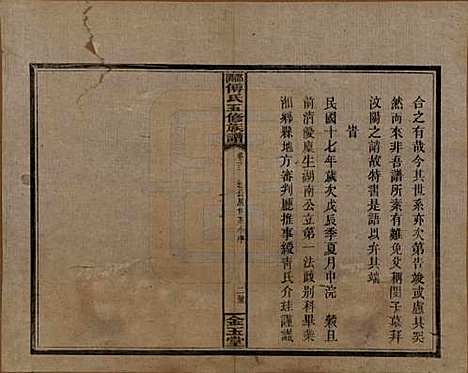 合之有哉今其世系亦次第告竣或光其哭
然而來非吾譜所索有難免父稱閔子墓拜
汶陽之請故特書是語以弁其端
旹
民國十七年歲次戊辰季夏月中浣 穀旦
前清優廩生湖南公立第一法政别科畢業
湘鄉縣地方審判廳推事緩青氏介珪謹識
傅氏五修族譜
卷
二
金玉堂